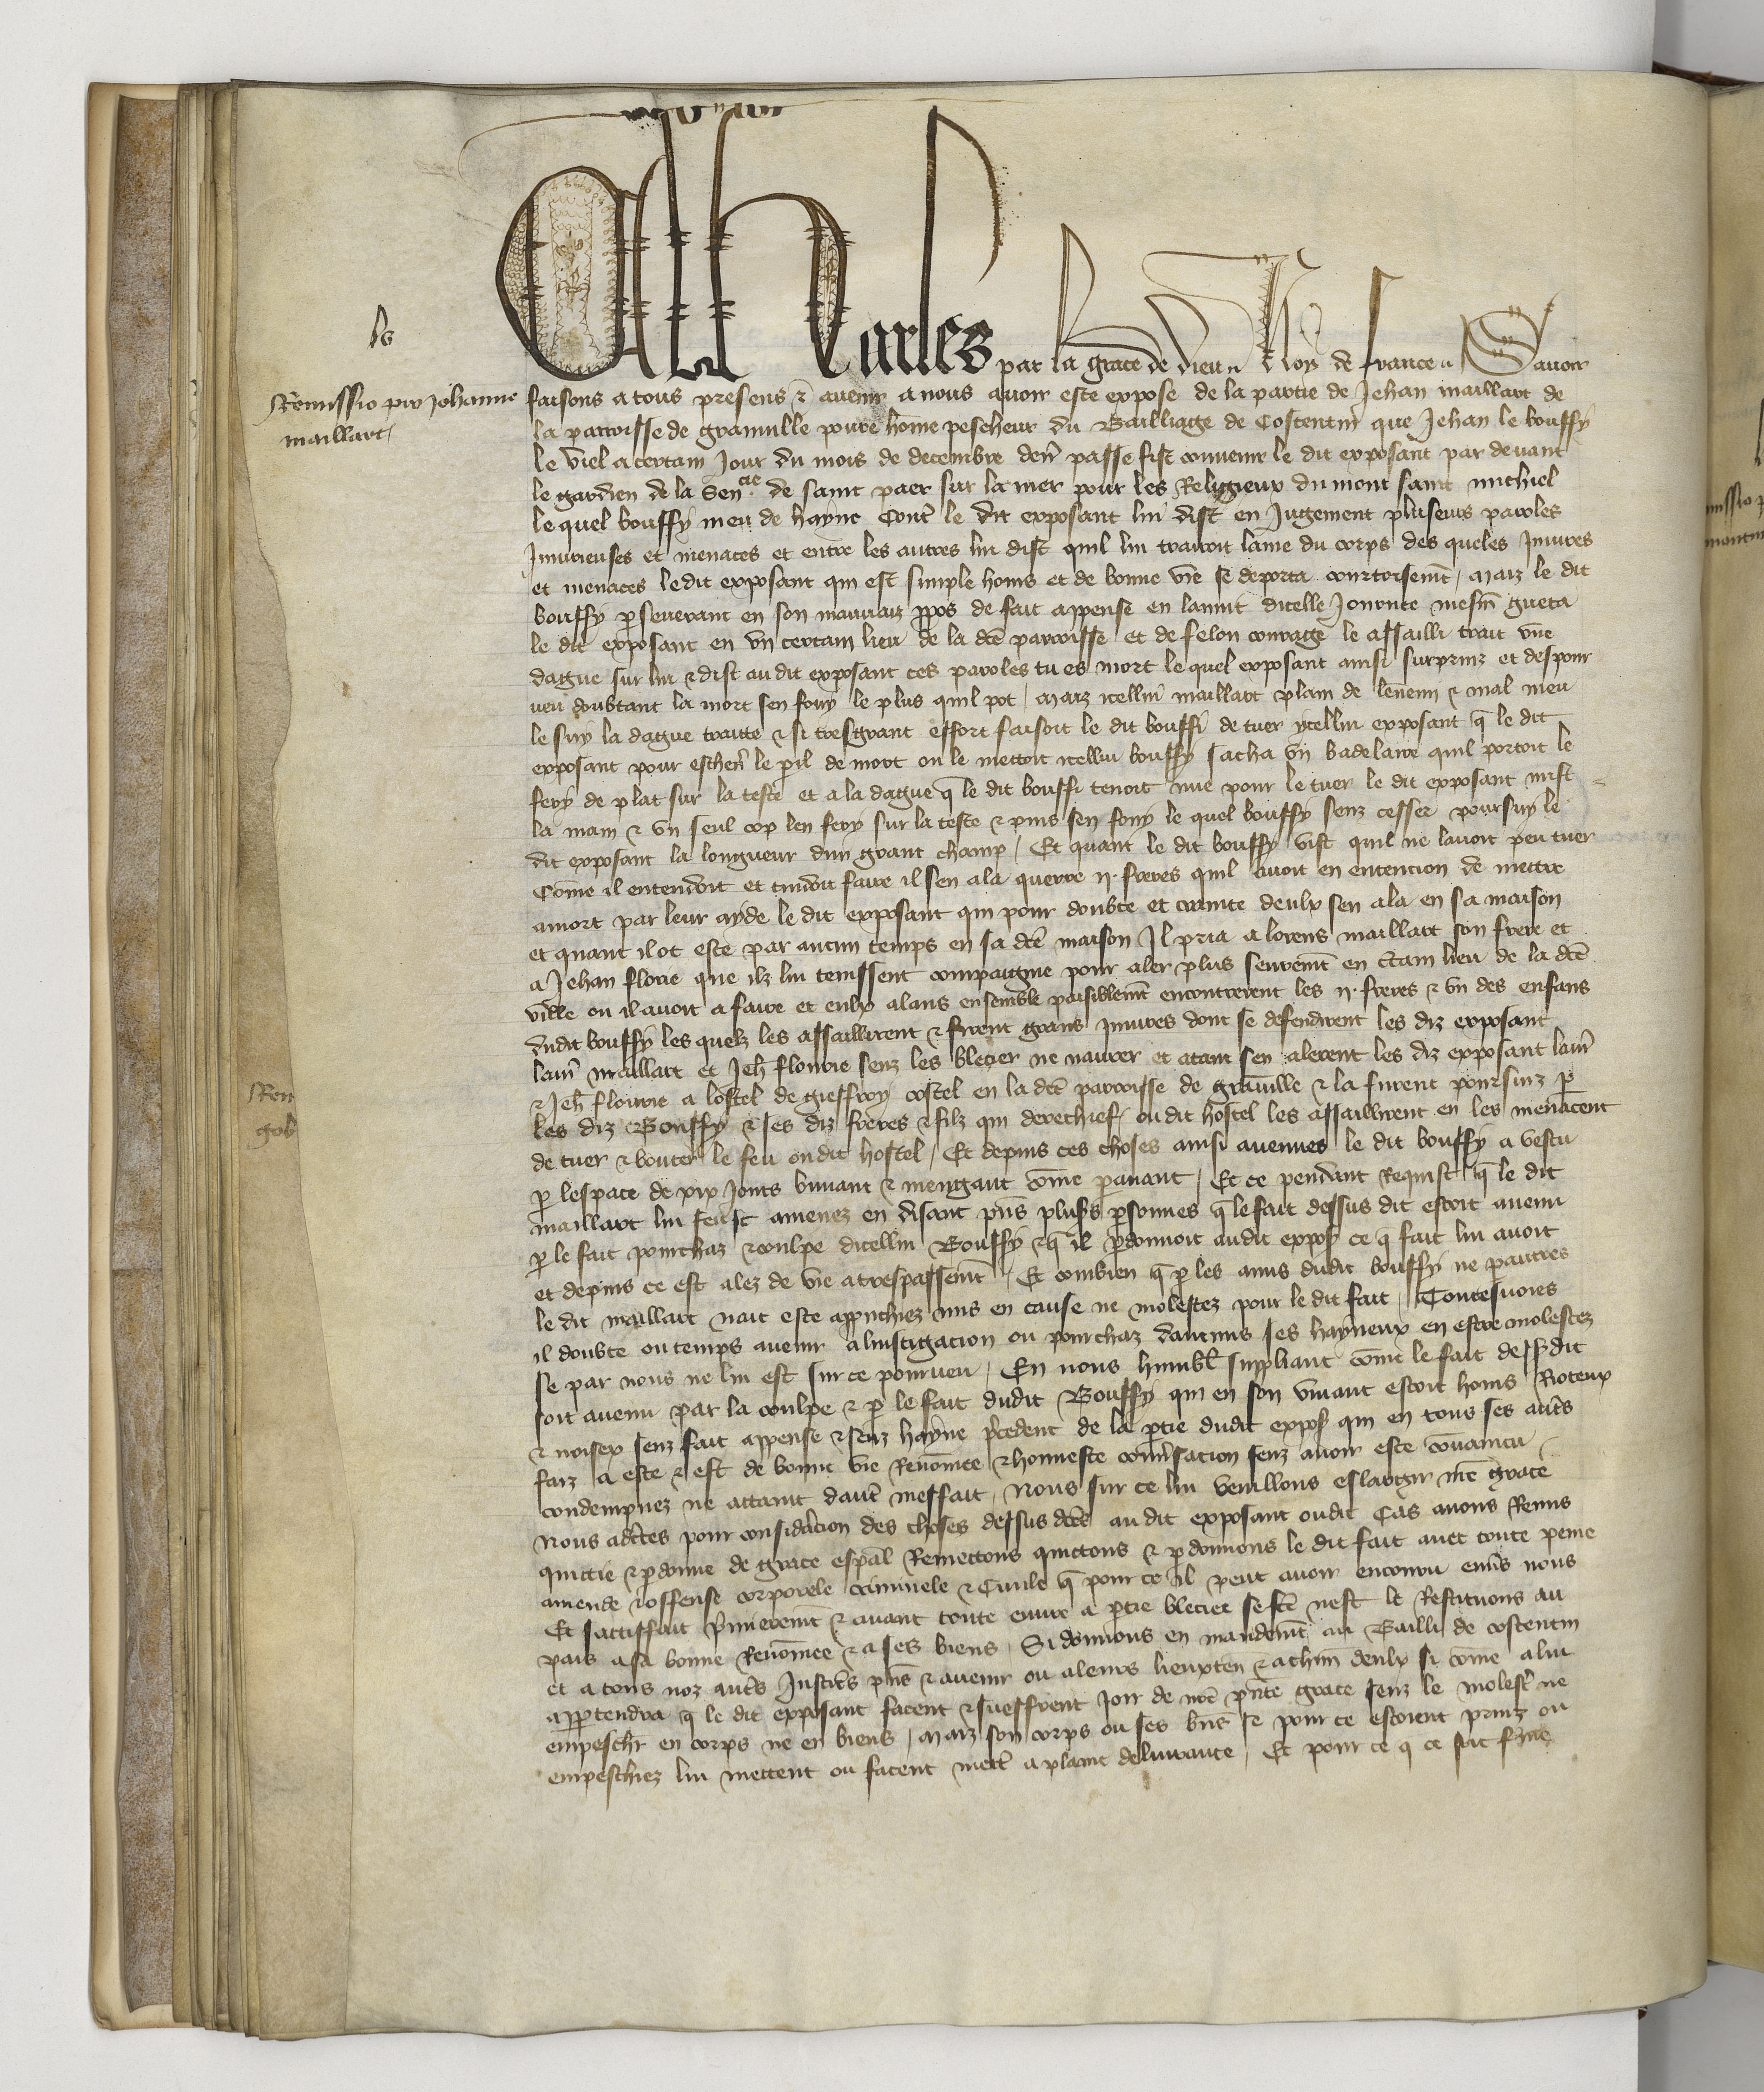 Charles par la grace de dieu Roy de france Savoir
Remissio pro Johanne
maillart
faisons a tous presens et avenir a nous avoir este expose de la partie de Jehan maillart de
la parroisse de granville povre home pescheur du Bailliage de Costentin que Jehan le bouffy
le viel a certain Jour du mois de decembre den passe fist convenir le dit exposant par devant
le gardien de la Sencie de saint paer sur la mer pour les Religieux du mont saint michiel
le quel bouffy meu de hayne Cont le dit exposant lui dist en Jugement pluseurs paroles
Iniurieuses et menaces et entre les autres lui dist quil lui trairoit lame du corps des queles Iniures
et menaces ledit exposant qui est simple homs et de bonne vie se deporta courtoisemt / Maiz le dit
bouffy pseverant en son mauvaiz ppos de fait appense en lanuit dicelle Journee mesm gueta
le dit exposant en un certain lieu de la dce parroisse et de felon courage le assailli trait une
dague sur lui & dist au dit exposant ces paroles tu es mort le quel exposant ainsi surprinz et despour
veu doubtant la mort sen fouy le plus quil pot / Maiz icellui maillart plain de lennemi & mal meu
le suy la dague traitte & si tresgrant effort faisoit le dit bouffi de tuer ycellui exposant q le dit
exposant pour eschever le pil de mort ou le mettoit icellui bouffy sacha un badelaire quil portoit le
fery de plat sur la teste et a la dague q le dit bouffi tenoit nue pour le tuer le dit exposant mist
la main & un seul cop len fery sur la teste & puis sen fouy le quel bouffy senz cesser poursuy le
dit exposant la longueur dun grant champ / Et quant le dit bouffy vist quil ne lavoit peu tuer
Come il entendoit et cuidoit faire il sen ala querre ii freres quil avoit en entencion de mettre
a mort par leur ayde le dit exposant qui pour doubte et crainte deulx sen ala en sa maison
et quant il ot este par aucun temps en sa dce maison Il pria a lorens maillart son frere et
a Jehan florie que ilz lui tenissent compaignie pour aler plus seuremt en ctain lieu de la dce
ville ou il avoit a faire et eulx alans ensemble paisiblemt encontrerent les ii freres & un des enfans
dudit bouffy les quelz les assaillirent & firent grans Iniures dont se defendirent les diz exposant
laur maillart et Jeh flourie senz les blecier ne navrer et atant sen alerent les diz exposant laur
& Jeh flourie a lostel de gieffroy costel en la dce parroisse de granville & la furent poursuiz p
les diz Bouffy & ses diz freres & filz qui derechief ou dit hostel les assaillirent en les menacent
de tuer & bouter le feu oudit hostel / Et depuis ces choses ainsi avenues le dit bouffy a vescu
p lespace de xix Jours buvant & mengant come pavant / Et ce pendant Requist q le dit
maillart lui feust amenez en disant pns pluss psonnes q le fait dessus dit estoit avenu
p le fait pourchaz & coulpe dicellui Bouffy & q il pdonnoit audit expos ce q fait lui avoit
et depuis ce est alez de vie a trespassemt / Et combien q p les amis dudit bouffy ne pautres
le dit maillart nait este approchiez mis en cause ne molestez pour le dit fait / Toutesvoies
il doubte ou temps avenir a linstigacion ou pourchaz daucuns ses hayneux en estre molestez
se par nous ne lui est sur ce pourveu / En nous humbl suppliant come le fait dessusdit
soit avenu par la coulpe & p le fait dudit Bouffy qui en son vivant estoit homs Rioteux
& noisex senz fait appense & senz hayne pcedent de la ptie dudit expos qui en tous ses auts
faiz a este & est de bonne vie Renomee & honneste conversacion senz avoir este convaincu
condempnez ne attaint daut meffait / Nous sur ce lui veuillons eslargir nre grace
Nous adctes pour considacion des choses dessus dces au dit exposant oudit Cas avons Remis
quictie & pdonne de grace espal Remettons quictons & pdonnons le dit fait avec toute peine
amende & offense corporele criminele & Civile q pour ce il peut avoir encouru envs nous
Et sattiffait pmieremt & avant toute euvre a ptie blecier se fce nest le Restituons au
pais a sa bonne Renomee & a ses biens / Si donnons en mandemt au Bailli de costentin
et a tous noz auts Justics pns & avenir ou a leurs lieuxten & a chun deulx si come a lui
apptendra q le dit exposant facent & sueffrent Joir de nre pnte grace senz le molest ne
empeschr en corps ne en biens / Maiz son corps ou ses bns se pour ce estoient prinz ou
empeschiez lui mettent ou facent mett a plaine delivrance / Et pour ce q ce soit ferme